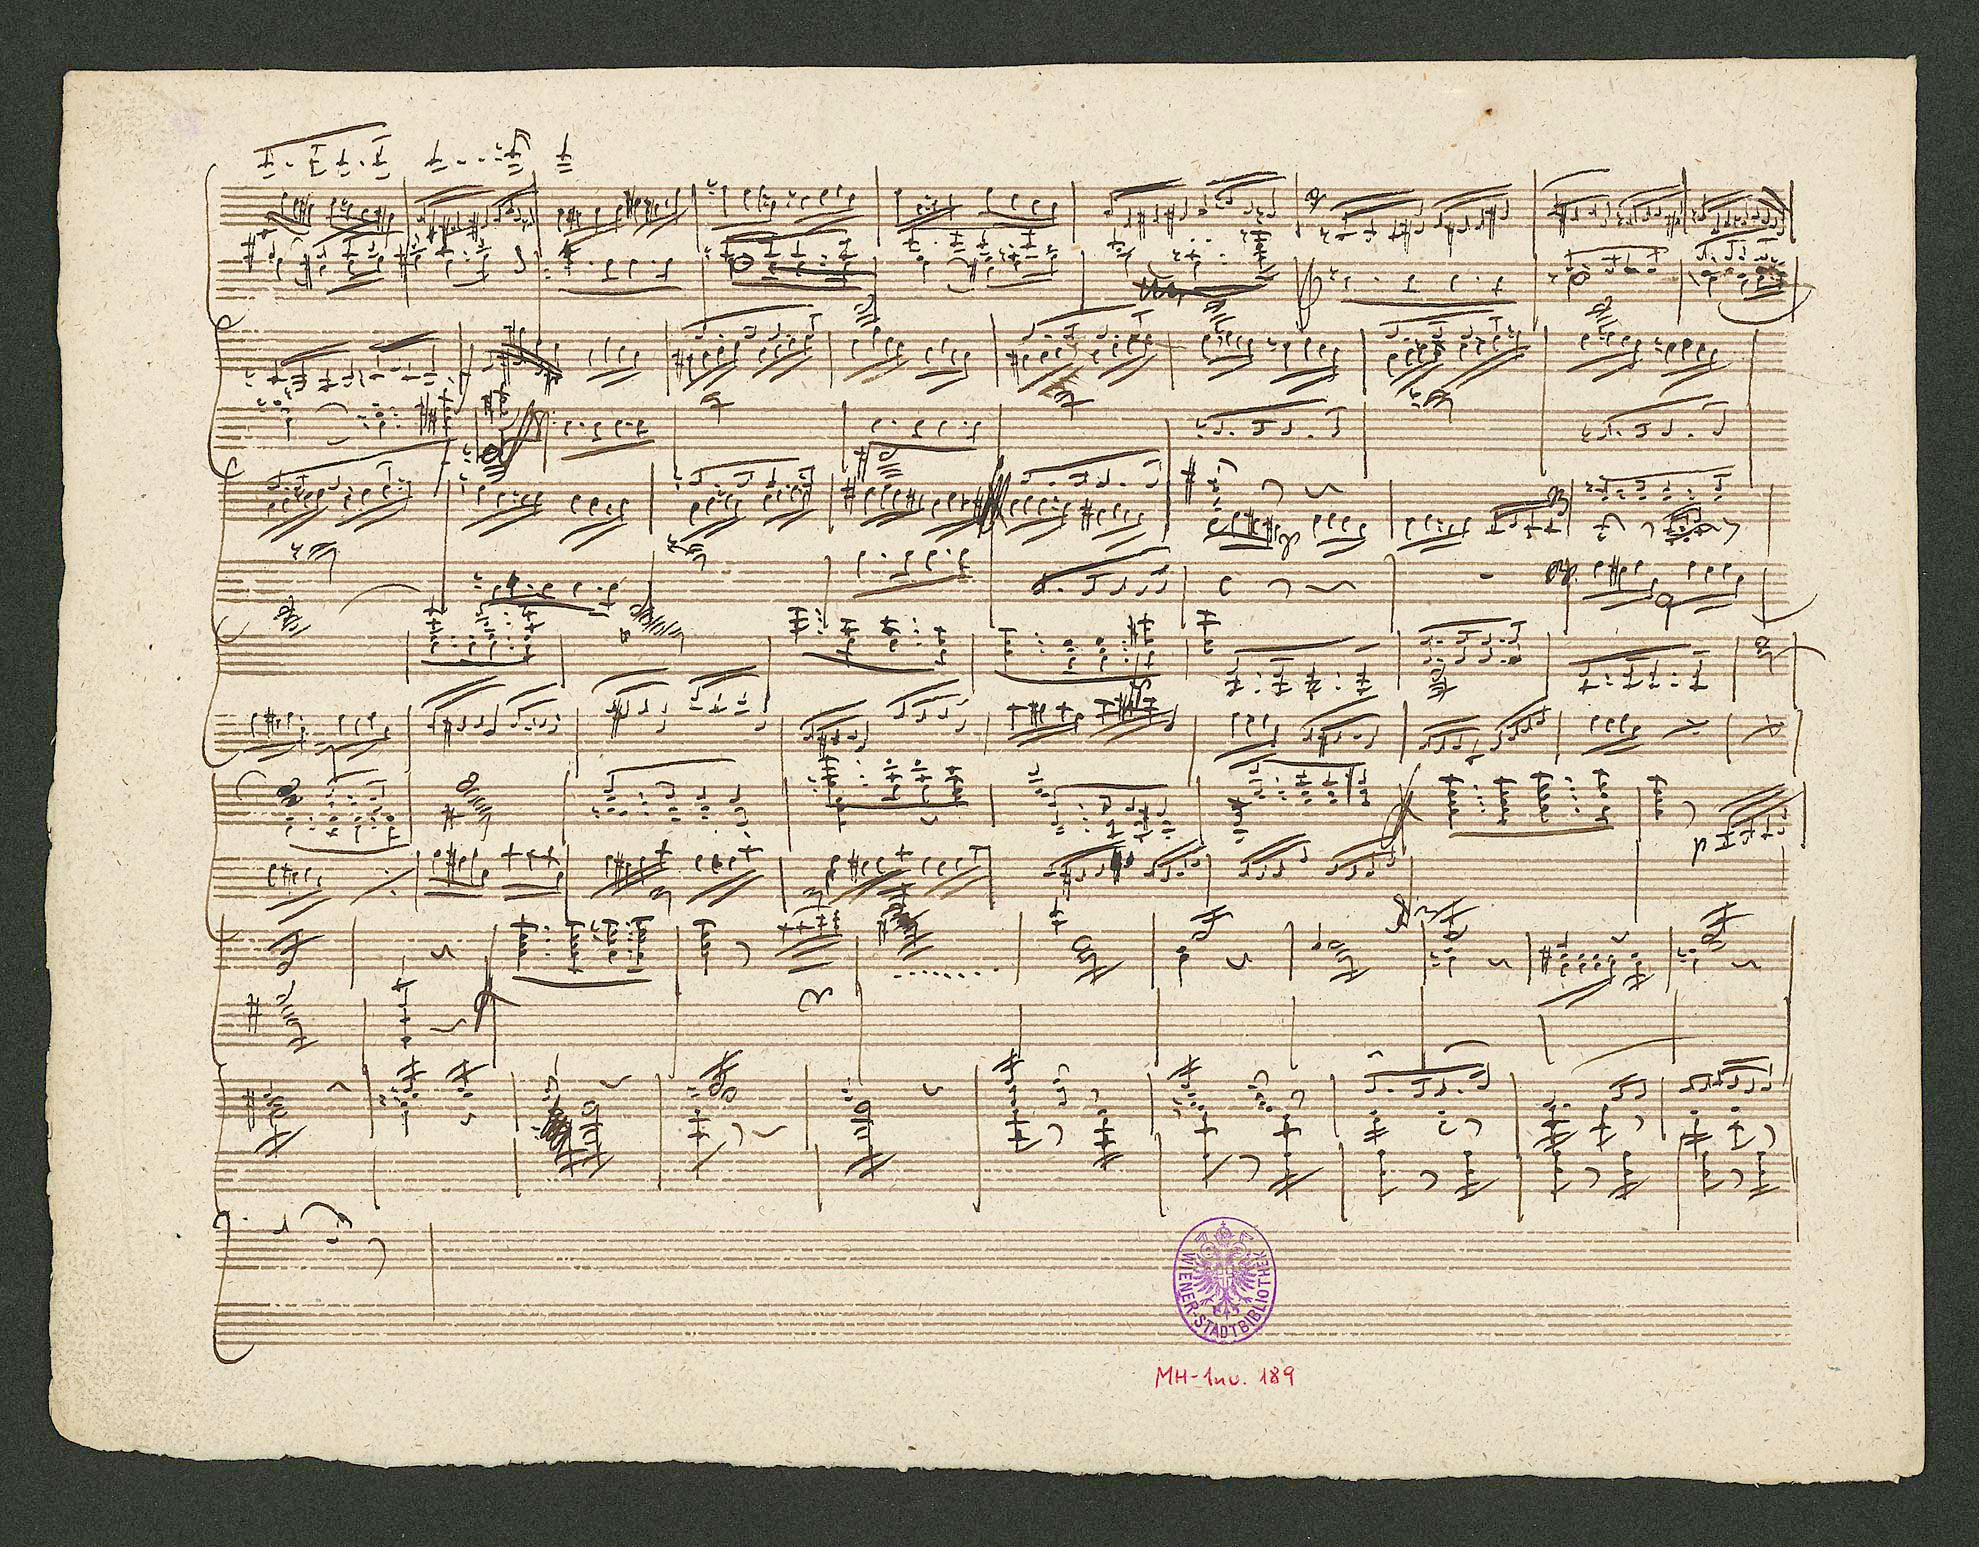 WIENER-STADTBIBLIOTHEK
MH-Inv. 189